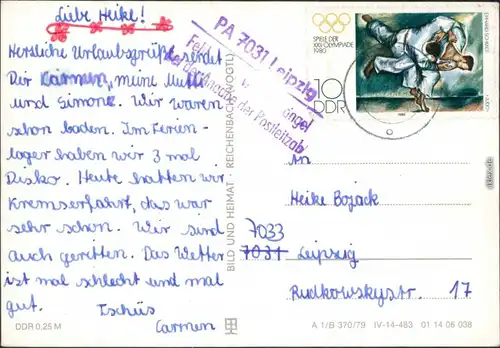 Liebe Heike!
Herzliche Urlaubsgrüße sendet
Dir Carmen, meine Mutti
und Simone. Wir waren
schon baden. Im Ferien-
lager haben wir 3 mal
Disko. Heute hatten wir
Kremserfahrt, das war
sehr schön. Wir sind
auch geritten. Das Wetter
ist mal schlecht und mal
gut. Tschüs
Carmen
DDR 0,25 M
BILD UND HEIMAT REICHENBACH (VOGTL)
PA 7031 Leipzig
der Postleitzahl
SPIELE DER
XXII. OLYMPIADE
1980
10
DDR
An
Heike Bojack
7033
7031 Leipzig
Rudkowskystr. 17
A 1/B 370/79 IV-14-483 01 14 06 038